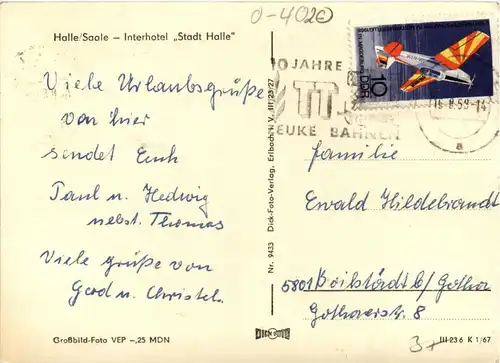 0-4020
Halle/Saale – Interhotel „Stadt Halle"
Viele Urlaubsgrüße
von hier
sendet Euch
Paul u. Hedwig
nebst. Thomas
Viele grüße von
Gerd u. Christel.
Großbild-Foto VEP –,25 MDN
Nr. 9433 Dick-Foto-Verlag, Erlbach i. V. III/23/27
DICK FOTO
10
DDR
JAHRE
TT
ZEUKE BAHNEN
a
Familie
Ewald Hildebrandt
5801 Boilstädt b/ Gotha
Gothaerstr. 8
III 23 6 K 1/67